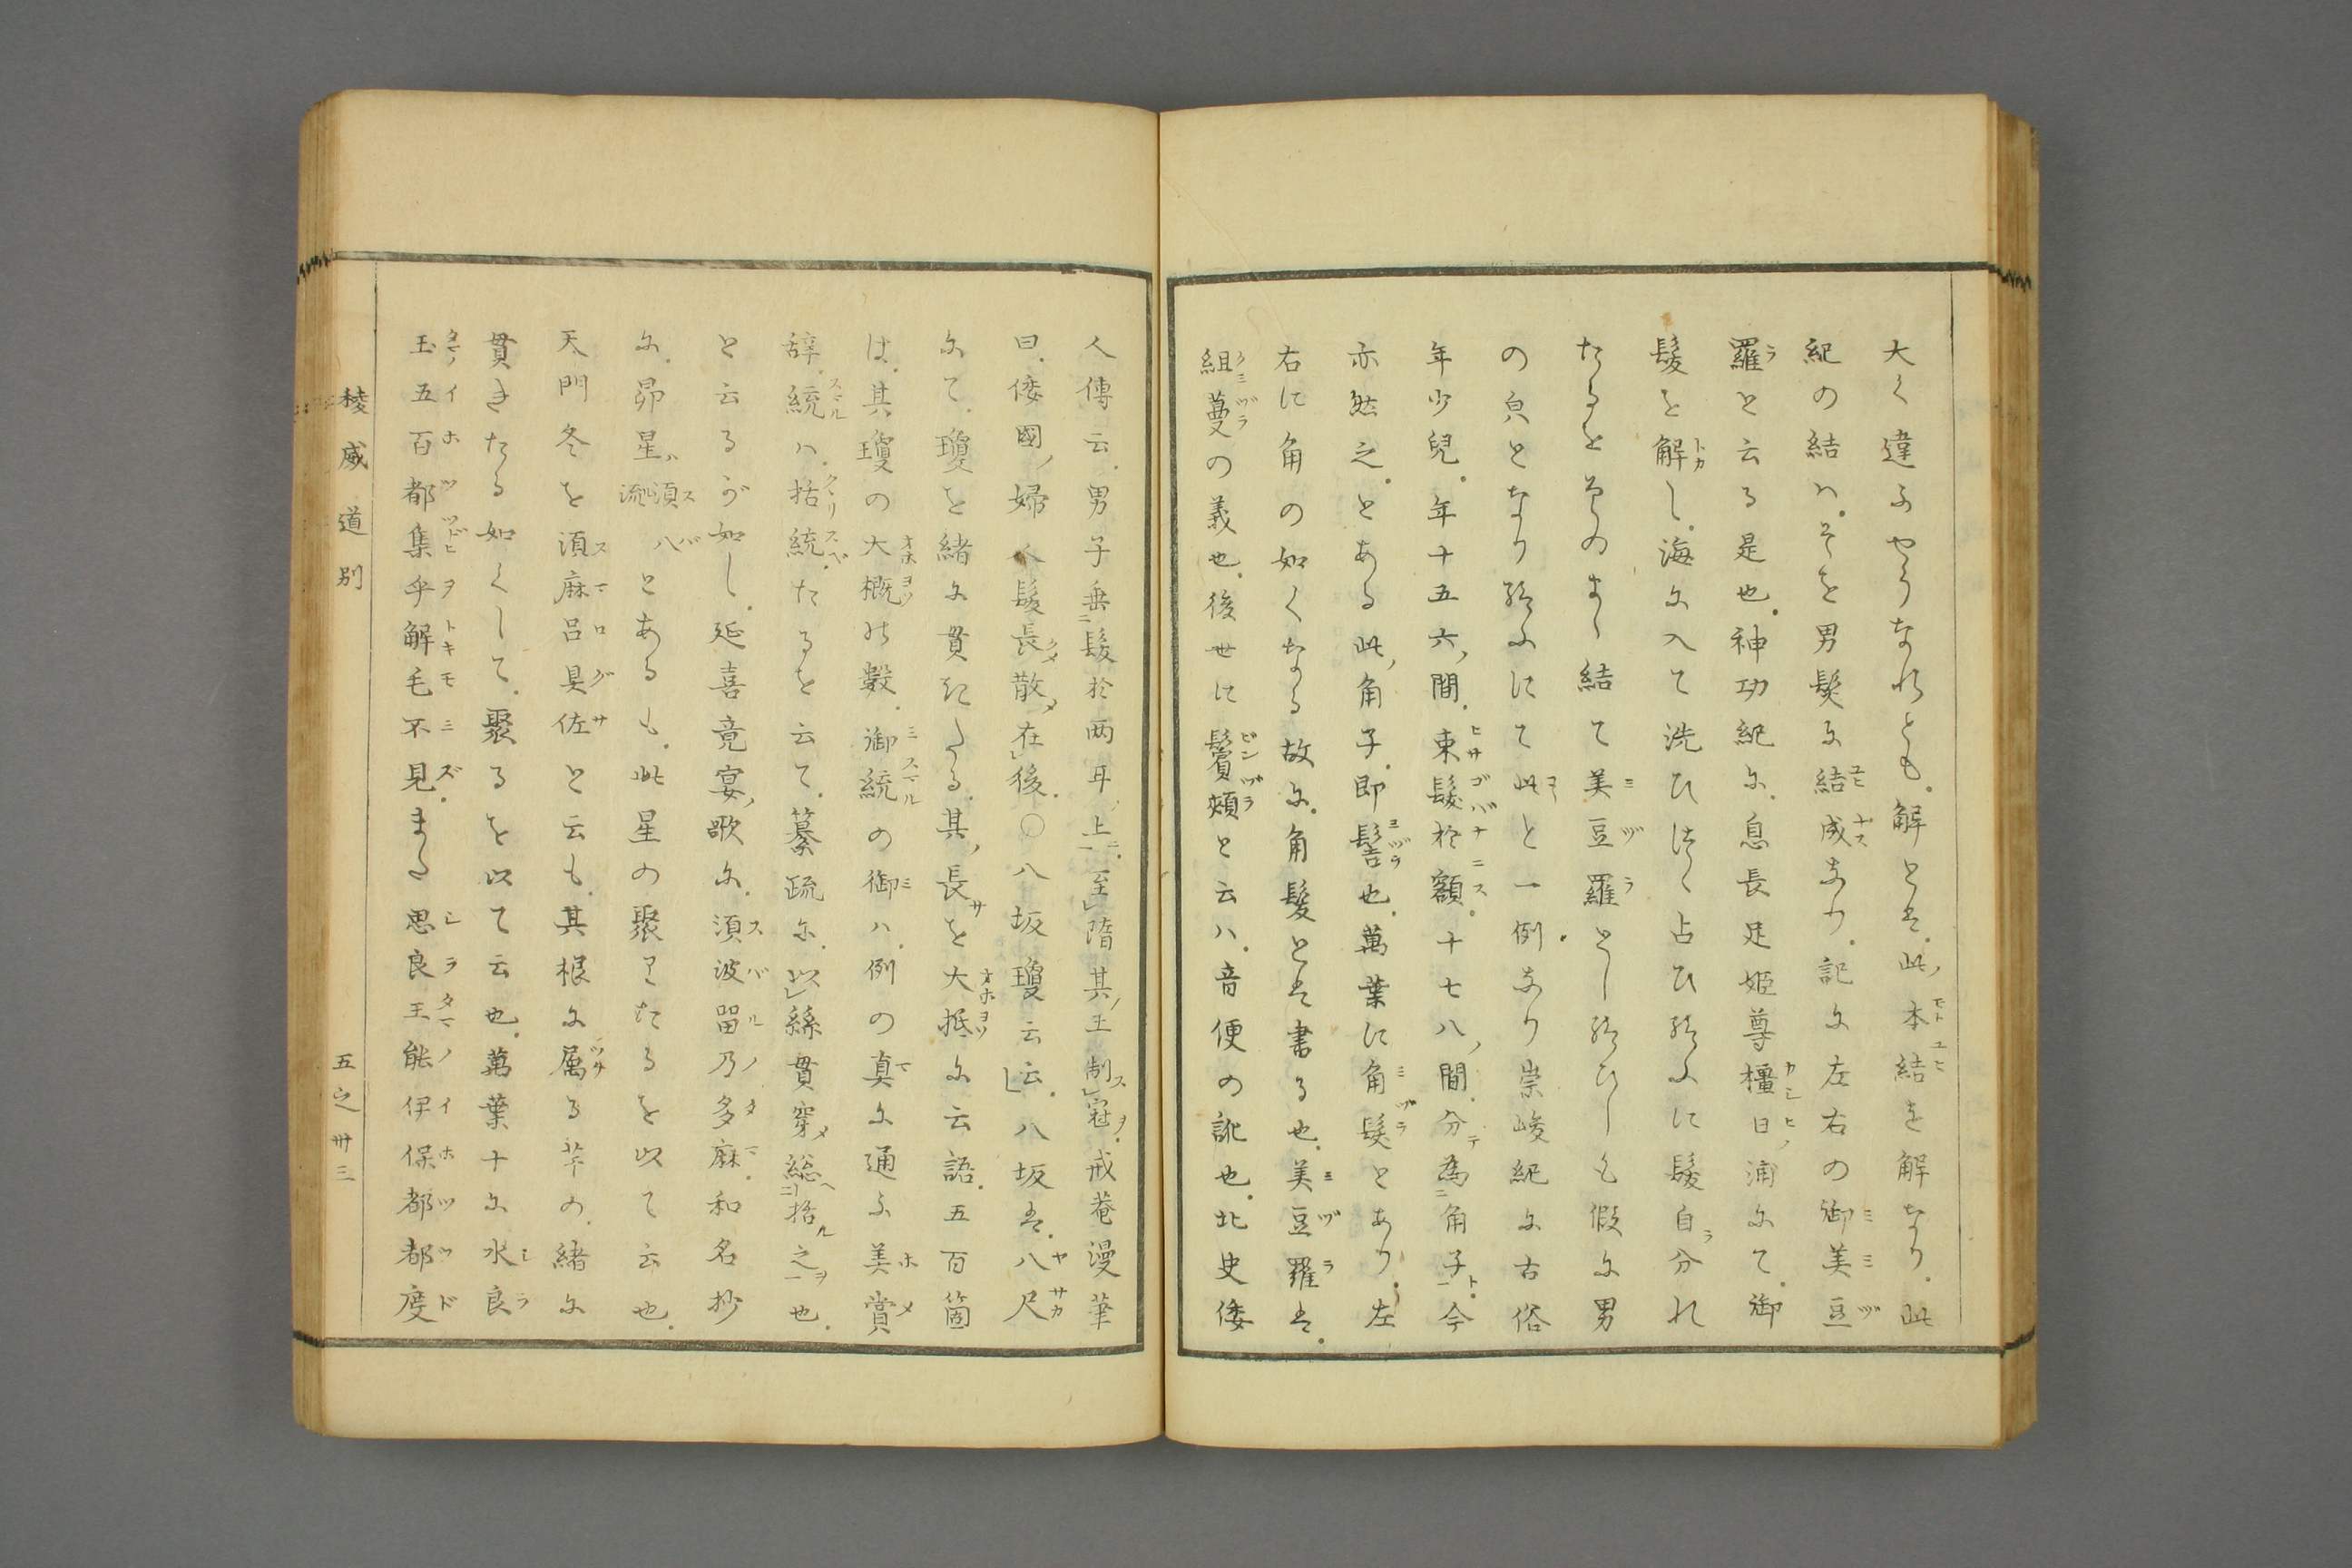 大く違ふやうなれとも。解とは。此ノ本結を解なり。此
紀の結ハ。そを男髮に結成なり。記に左右の御美豆
羅と云る是也。神功紀に。息長足姫尊橿日ノ浦にて。御
髮を解し。海に入て洗ひ給ひ占ひ給ふに髮自分れ
たるをそのまゝ結て美豆羅とし給ひしも假に男
の皃となり給ふにて此と一例なり崇峻紀に古俗
年少兒。年十五六ノ間。束髮於額。十七八ノ間。分為角子。今
亦然之。とある此ノ角子。即髻也。萬葉に角髮とあり。左
右に角の如くなる故に。角髮とは書る也。美豆羅は。
組蔓の義也。後世に鬢頰と云ハ。音便の訛也。北史倭
人傳云。男子垂髮於兩耳ノ上。至隋其ノ王制冠。戒菴漫筆
曰。倭國ノ婦人髮長散在後。○八坂瓊云云。八坂は。八尺
にて。瓊を緒に貫たる。其ノ長を大抵に云語。五百箇
は。其瓊の大概の數。御統の御ハ。例の真に通ふ美賞
辞。統ハ。括統たるを云て。纂疏に。以絲貫穿総括之也。
と云るが如し。延喜竟宴ノ歌に。須波留乃多麻。和名抄
に。昴星ハ須八流とあるも。此星の聚りたるを以て云也。
天門冬を須麻呂具佐と云も。其根に属る芋の。緒に
貫きたる如くして。聚るを以て云也。萬葉十に水良
玉五百都集乎解毛不見。また思良玉能伊保都都度
稜威道別 五之卅三